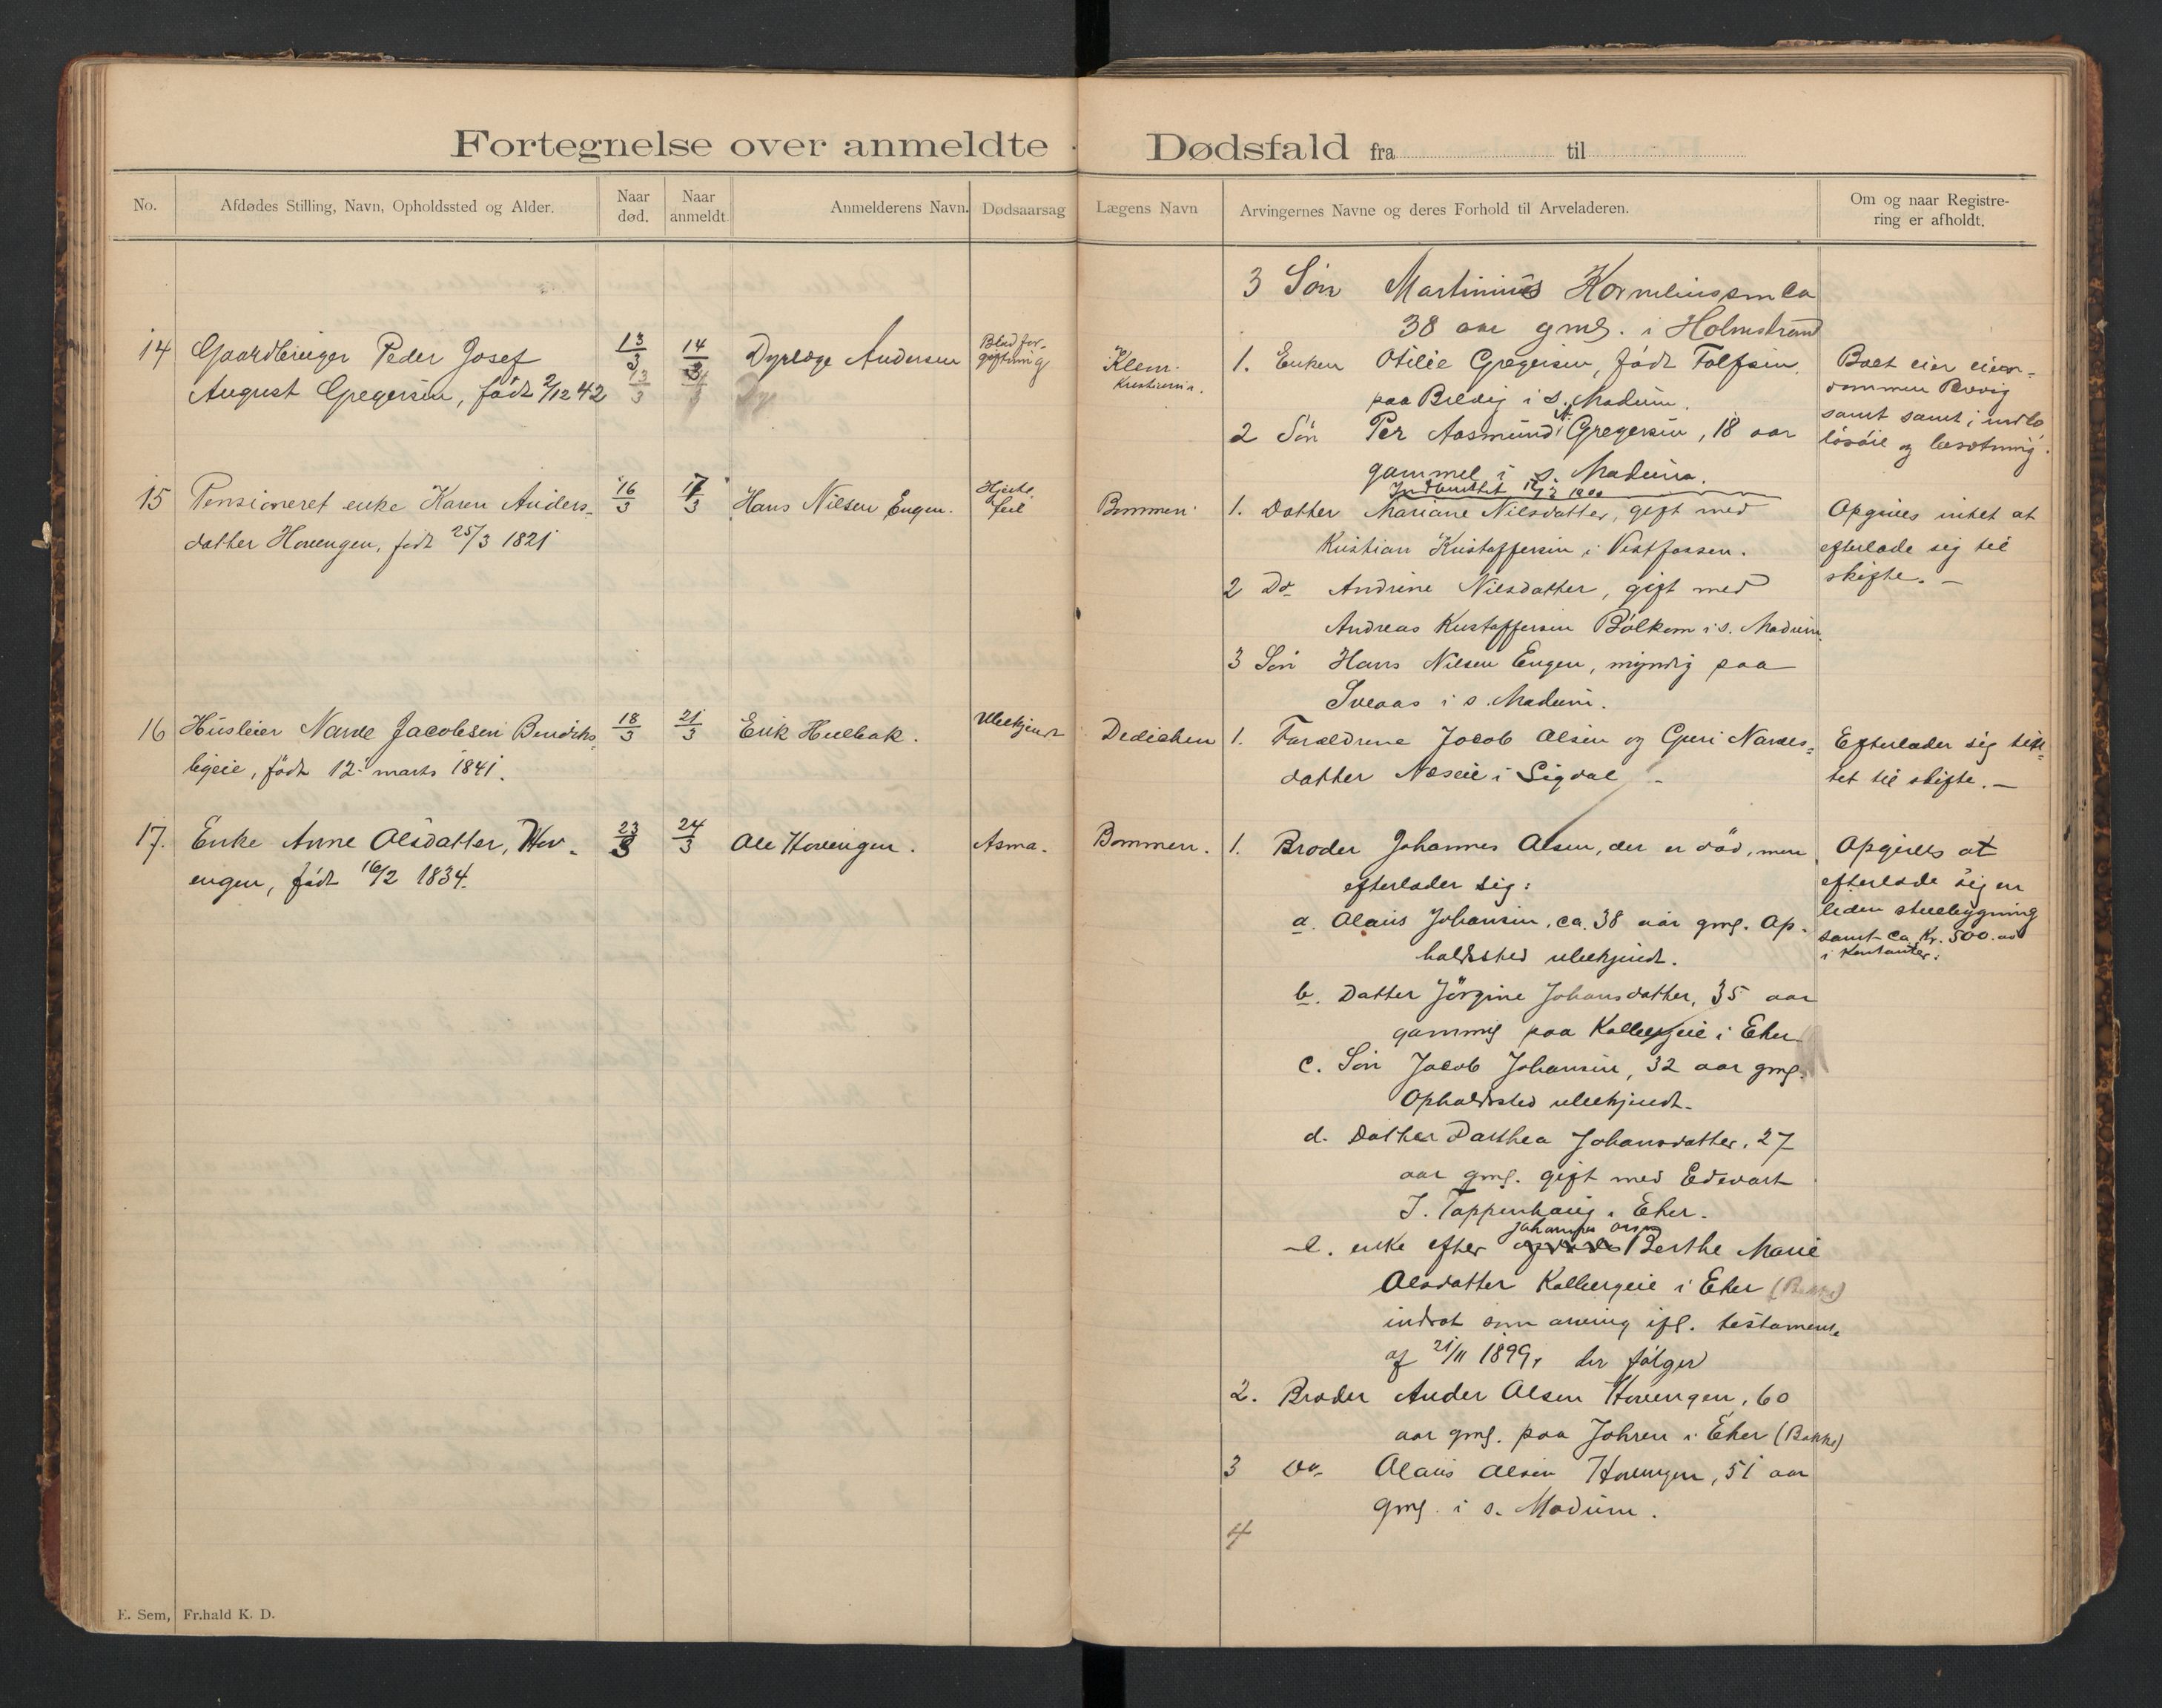 Fortegnelse over anmeldte Dødsfald fra til
No. Afdødes Stilling, Navn, Opholdssted og Alder. Naar død. Naar anmeldt Anmelderens Navn. Dødsaarsag Lægens Navn Arvingernes Navne og deres Forhold til Arveladeren. Om og naar Registrering er afholdt.
3 Søn Martinius Kornelliussen ca
38 aar gml. i Holmstrand
14 Gaardbruger Peder Josef
August Gregersen, født 2/12 42
13/3
14/3
Dyrlæge Andersen
Blodfor-
giftning
Klem.
Kristiania.
1. Enken Otilie Gregersen, født Tolfsen
paa Bredvig i S. Modum.
2 Søn Per Aasmund Gregersen, 18 aar
gammel i S. Modum.
Indberettet 1900
Boet eier eien-
dommen
samt samt i indbo
løsøie og besætning.
15 Pensioneret enke Karen Anders-
datter Hovengen, født 25/3 1821
16/3
17/3
Hans Nilsen Engen.
Hjerte
feil
Bommen
1. Datter Mariane Nilsdatter, gift med
Kristian Kristoffersen i Vestfossen.
2 Do Andrine Nilsdatter, gift med
Andreas Kristoffersen Bølkom i s. Modum.
3 Søn Hans Nilsen Engen, myndig paa
Sveaas i s. Modum.
Opgives intet at
efterlade sig til
skifte. —
16 Husleier Narve Jacobsen Bendiks-
byeie, født 12 marts 1841.
18/3
21/3
Erik Hulbak.
Ubekjendt
Dedichen
1. Forældrene Jacob Olsen og Guri Narves-
datter Næseie i Sigdal -
Efterlader sig in-
tet til skifte. —
17. Enke Anne Olsdatter, Hov-
engen, født 16/2 1834.
23/3
24/3
Ole Hovengen.
Asma.
Bommen.
1. Broder Johannes Olsen, der er død, men
efterlader sig:
a. Olaus Johansen, ca. 38 aar gml. Op-
holdssted ubekjendt.
b. Datter Jörgine Johansdatter, 35 aar
gammel paa Kolbergeie i Eker
c. Søn Jacob Johansen, 32 aar gml.
Opholdssted ubekjendt.
d. Datter Dorthea Johansdatter, 27
aar gml. gift med Edevart
J. Tappenhaug i Eker.
e. enke efter Johannes Berthe Marie
Olsdatter Kolbergeie i Eker (Bakke)
indsat som arving ifl. testamente
af 21/11 1899, der følger
2. Broder Ander Olsen Hovengen, 60
aar gml. paa Johren i Eker (Bakke)
3 Do Olaus Olsen Hovengen, 51 aar
gml. i s. Modum.
4
Opgives at
efterlade sig en
liden stuebygning
samt ca. Kr. 500.00
i kontanter.
E. Sem, Fr.hald K. D.